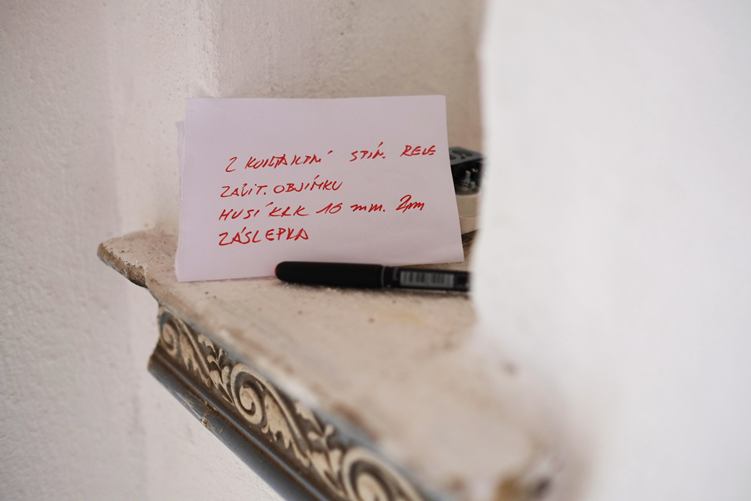 2 KONTAKTNÍ STÍM. RELE
ZÁVIT. OBJÍMKU
HUSÍ KRK 16 mm. 2m
ZÁSLEPKA